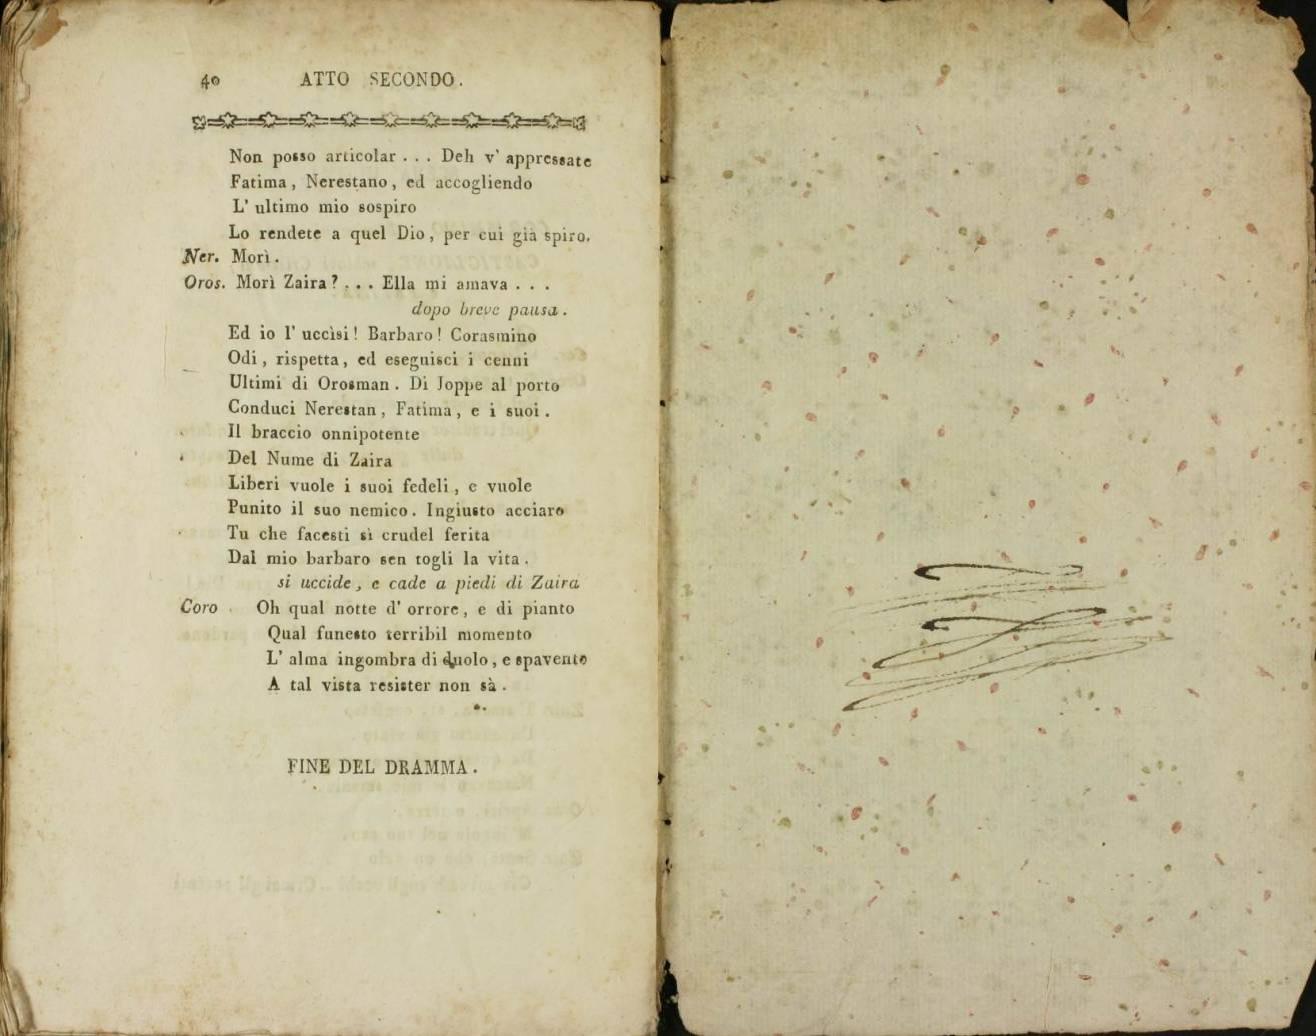 40 ATTO SECONDO.
Non posso articolar . . . Deh v' appressate
Fatima, Nerestano, ed accogliendo
L' ultimo mio sospiro
Lo rendete a quel Dio, per cui già spiro.
Ner. Morì.
Oros. Morì Zaira? . . . Ella mi amava . . .
dopo breve pausa.
Ed io l' uccìsi! Barbaro! Corasmino
Odi, rispetta, ed eseguisci i cenni
Ultimi di Orosman. Di Joppe al porto
Conduci Nerestan, Fatima, e i suoi.
Il braccio onnipotente
Del Nume di Zaira
Liberi vuole i suoi fedeli, e vuole
Punito il suo nemico. Ingiusto acciaro
Tu che facesti sì crudel ferita
Dal mio barbaro sen togli la vita.
si uccide, e cade a piedi di Zaira
Coro Oh qual notte d' orrore, e di pianto
Qual funesto terribil momento
L' alma ingombra di duolo, e spavento
A tal vista resister non sà.
FINE DEL DRAMMA.